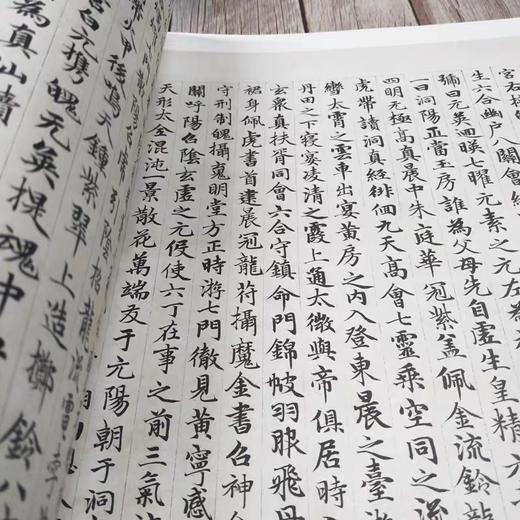 宮右
生六合幽戶八關會經
彌日元英四暎七曜元素之元左為
一曰洞陽正當玉房誰為父母先自虛生皇精
四明元極高真晨中朱庭華冠紫盖佩金流鈴龍
虎帶讀洞真經徘徊九天高會七靈乘空同之流
鸞太霄之雲車出宴黃房之內入登東晨之臺
丹田之下寢宴凌清之霞上通太微與帝俱居時
玄眾真扶胥同會六合守鎮命門錦帔羽服飛丹
裙身佩虎書首建晨冠龍符攝魔金書召神
守形制魄攝鬼明堂方正時游七門徹見黃寧感
關呼陽召陰玄虛之元役使六丁在事之前三氣
天形太全混沌一景散花萬端及于元陽朝于洞
火甲後鳴天鐘紫翠上造鬱鈴八
宮白元攜魄元英捉魂中
為真仙讀